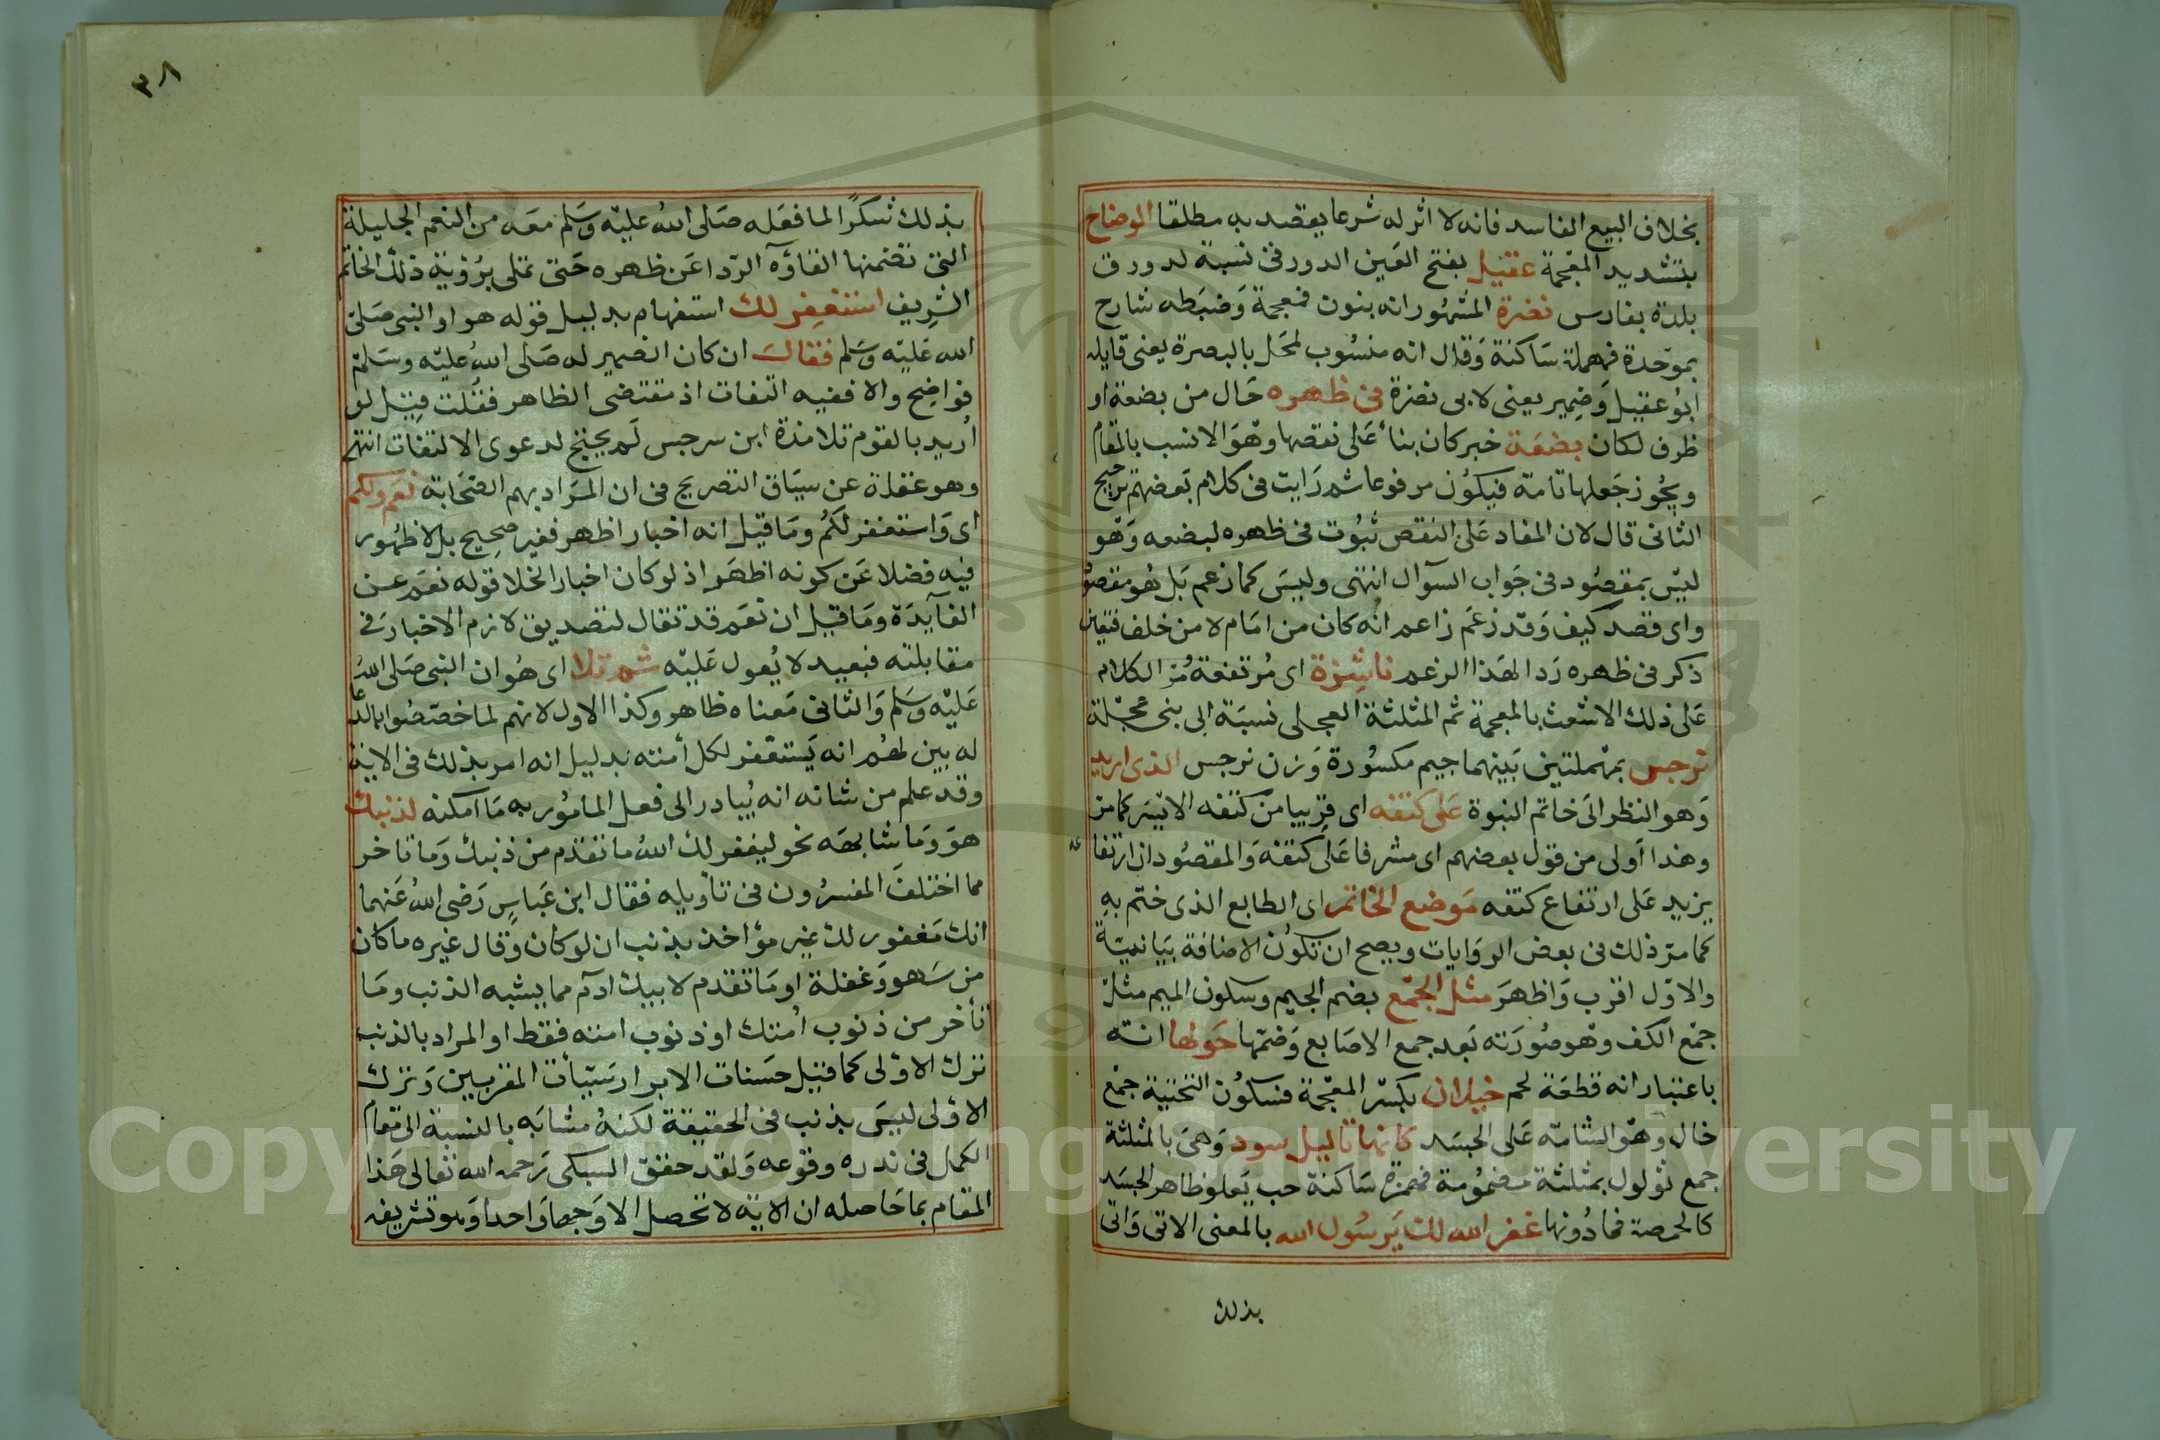 بخلاف البيع الفاسد فانه لا اثر له شرعا يقصد به مطلقا الوضاح
بتشديد المعجمة عقيل بفتح العين الدورقى نسبة لدورق
بلدة بفارس نضرة المشهور انه بنون فمعجمة وضبطه شارح
بموحدة فمهملة ساكنة وقال انه منسوب لمحل بالبصرة يعنى قايله
ابو عقيل وضمير يعنى لابى نضرة فى ظهره حال من بضعة او
ظرف لكان بضعة خبر كان بناء على نقصها وهو الانسب بالمقام
ويجوز جعلها تامة فيكون مرفوعا ثم رايت فى كلام بعضهم ترجيح
الثانى قال لان المفاد على النقص ثبوت فى ظهره لبضعه وهو
ليس بمقصود فى جواب السؤال انتهى وليس كما زعم بل هو مقصود
واى قصد كيف وقد زعم زاعم انه كان من امام لا من خلف فتعين
ذكر فى ظهره ردا لهذا الزعم ناشزة اى مرتفعة مر الكلام
على ذلك الاشعث بالمعجمة ثم المثلثة العجلى نسبة الى بنى عجلة
نرجس بمهملتين بينهما جيم مكسورة وزن نرجس الذى اريد
وهو النظر الى خاتم النبوة على كتفه اى قريبا من كتفه الايسر كما مر
وهذا اولى من قول بعضهم اى مشرفا على كتفه والمقصود ان ارتفا
يزيد على ارتفاع كتفه موضع الخاتم اى الطابع الذى ختم به
كما مر ذلك فى بعض الروايات ويصح ان تكون الاضافة بيانية
والاول اقرب واظهر مثل الجمع بضم الجيم وسكون الميم مثل
جمع الكف وهو صورته بعد جمع الاصابع وضمها حولها انثه
باعتبار انه قطعة لحم خيلان بكسر المعجمة فسكون التحتية جمع
خال وهو الشامة على الجسد كانها تاليل سود وهى بالمثلثة
جمع ثولول بمثلثة مضمومة فهمزة ساكنة حب يعلو ظاهر الجسد
كالحمصة فما دونها غفر الله لك يرسول الله بالمعنى الاتى واتى
بذلك
٣٨
بذلك شكرا لما فعله صلى الله عليه وسلم معه من النعم الجليلة
التى تضمنها القاؤه الردا عن ظهره حتى تملى برؤية ذلك الخاتم
الشريف استغفر لك استفهام بدليل قوله هو او النبى صلى
الله عليه وسلم فقال ان كان الضمير له صلى الله عليه وسلم
فواضح والا ففيه التفات اذ مقتضى الظاهر فقلت قيل لو
اريد بالقوم تلامذة ابن سرجس لم يحتج لدعوى الالتفات انتهى
وهو غفلة عن سياق التصريح فى ان المراد بهم الصحابة نعم ولكم
اى واستغفر لكم وما قيل انه اخبار اظهر فغير صحيح بل لا ظهور
فيه فضلا عن كونه اظهر اذ لو كان اخبارا لخلا قوله نعم عن
الفآيدة وما قيل ان نعم قد تقال لتصديق لازم الاخبار فى
مقابلته فبعيد لا يعول عليه ثم تلا اى هو ان النبى صلى الله
عليه وسلم والثانى معناه ظاهر وكذا الاول لانهم لما خصصوا بالدعا
له بين لهم انه يستغفر لكل أمته بدليل انه امر بذلك فى الاية
وقد علم من شانه انه يبادر الى فعل المامور به ما امكنه لذنبك
هو وما شابهه نحو ليغفر لك الله ما تقدم من ذنبك وما تاخر
مما اختلف المفسرون فى تأويله فقال ابن عباس رضى الله عنهما
انك مغفور لك غير مؤاخذ بذنب ان لو كان وقال غيره ما كان
من سهو وغفلة او ما تقدم لابيك ادم مما يشبه الذنب وما
تأخر من ذنوب أمتك او ذنوب امته فقط او المراد بالذنب
ترك الاولى كما قيل حسنات الابرار سيئات المقربين وترك
الاولى ليس بذنب فى الحقيقة لكنه مشابه بالنسبة الى مقام
الكمل فى ندره وقوعه ولقد حقق السبكى رحمه الله تعالى هذا
المقام بما حاصله ان الاية لا تحصل الا وجها واحدا وهو تشريفه
Copyright © King Saud University